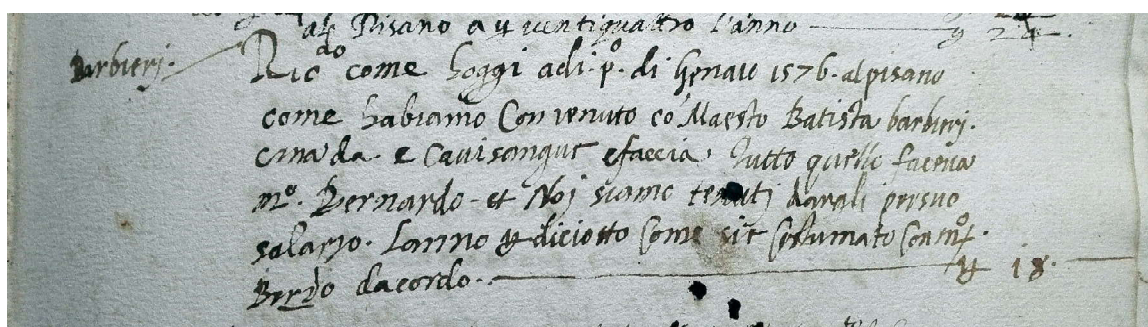 al Pisano a ∇ ventiquattro l'anno 24.
Barbieri.
Ric.do come hoggi adi p.o di Genaio 1576. al pisano
come habiamo Convenuto co Maestro Batista barbieri.
ci rada. e Cavi sangue e faccia tutto quello faceva
m.o Bernardo - et Noj siamo tenutj darali per suo
salario. Lanno ∇ diciotto Come si e costumato con m.o
Ber.do dacordo. ∇ 18.